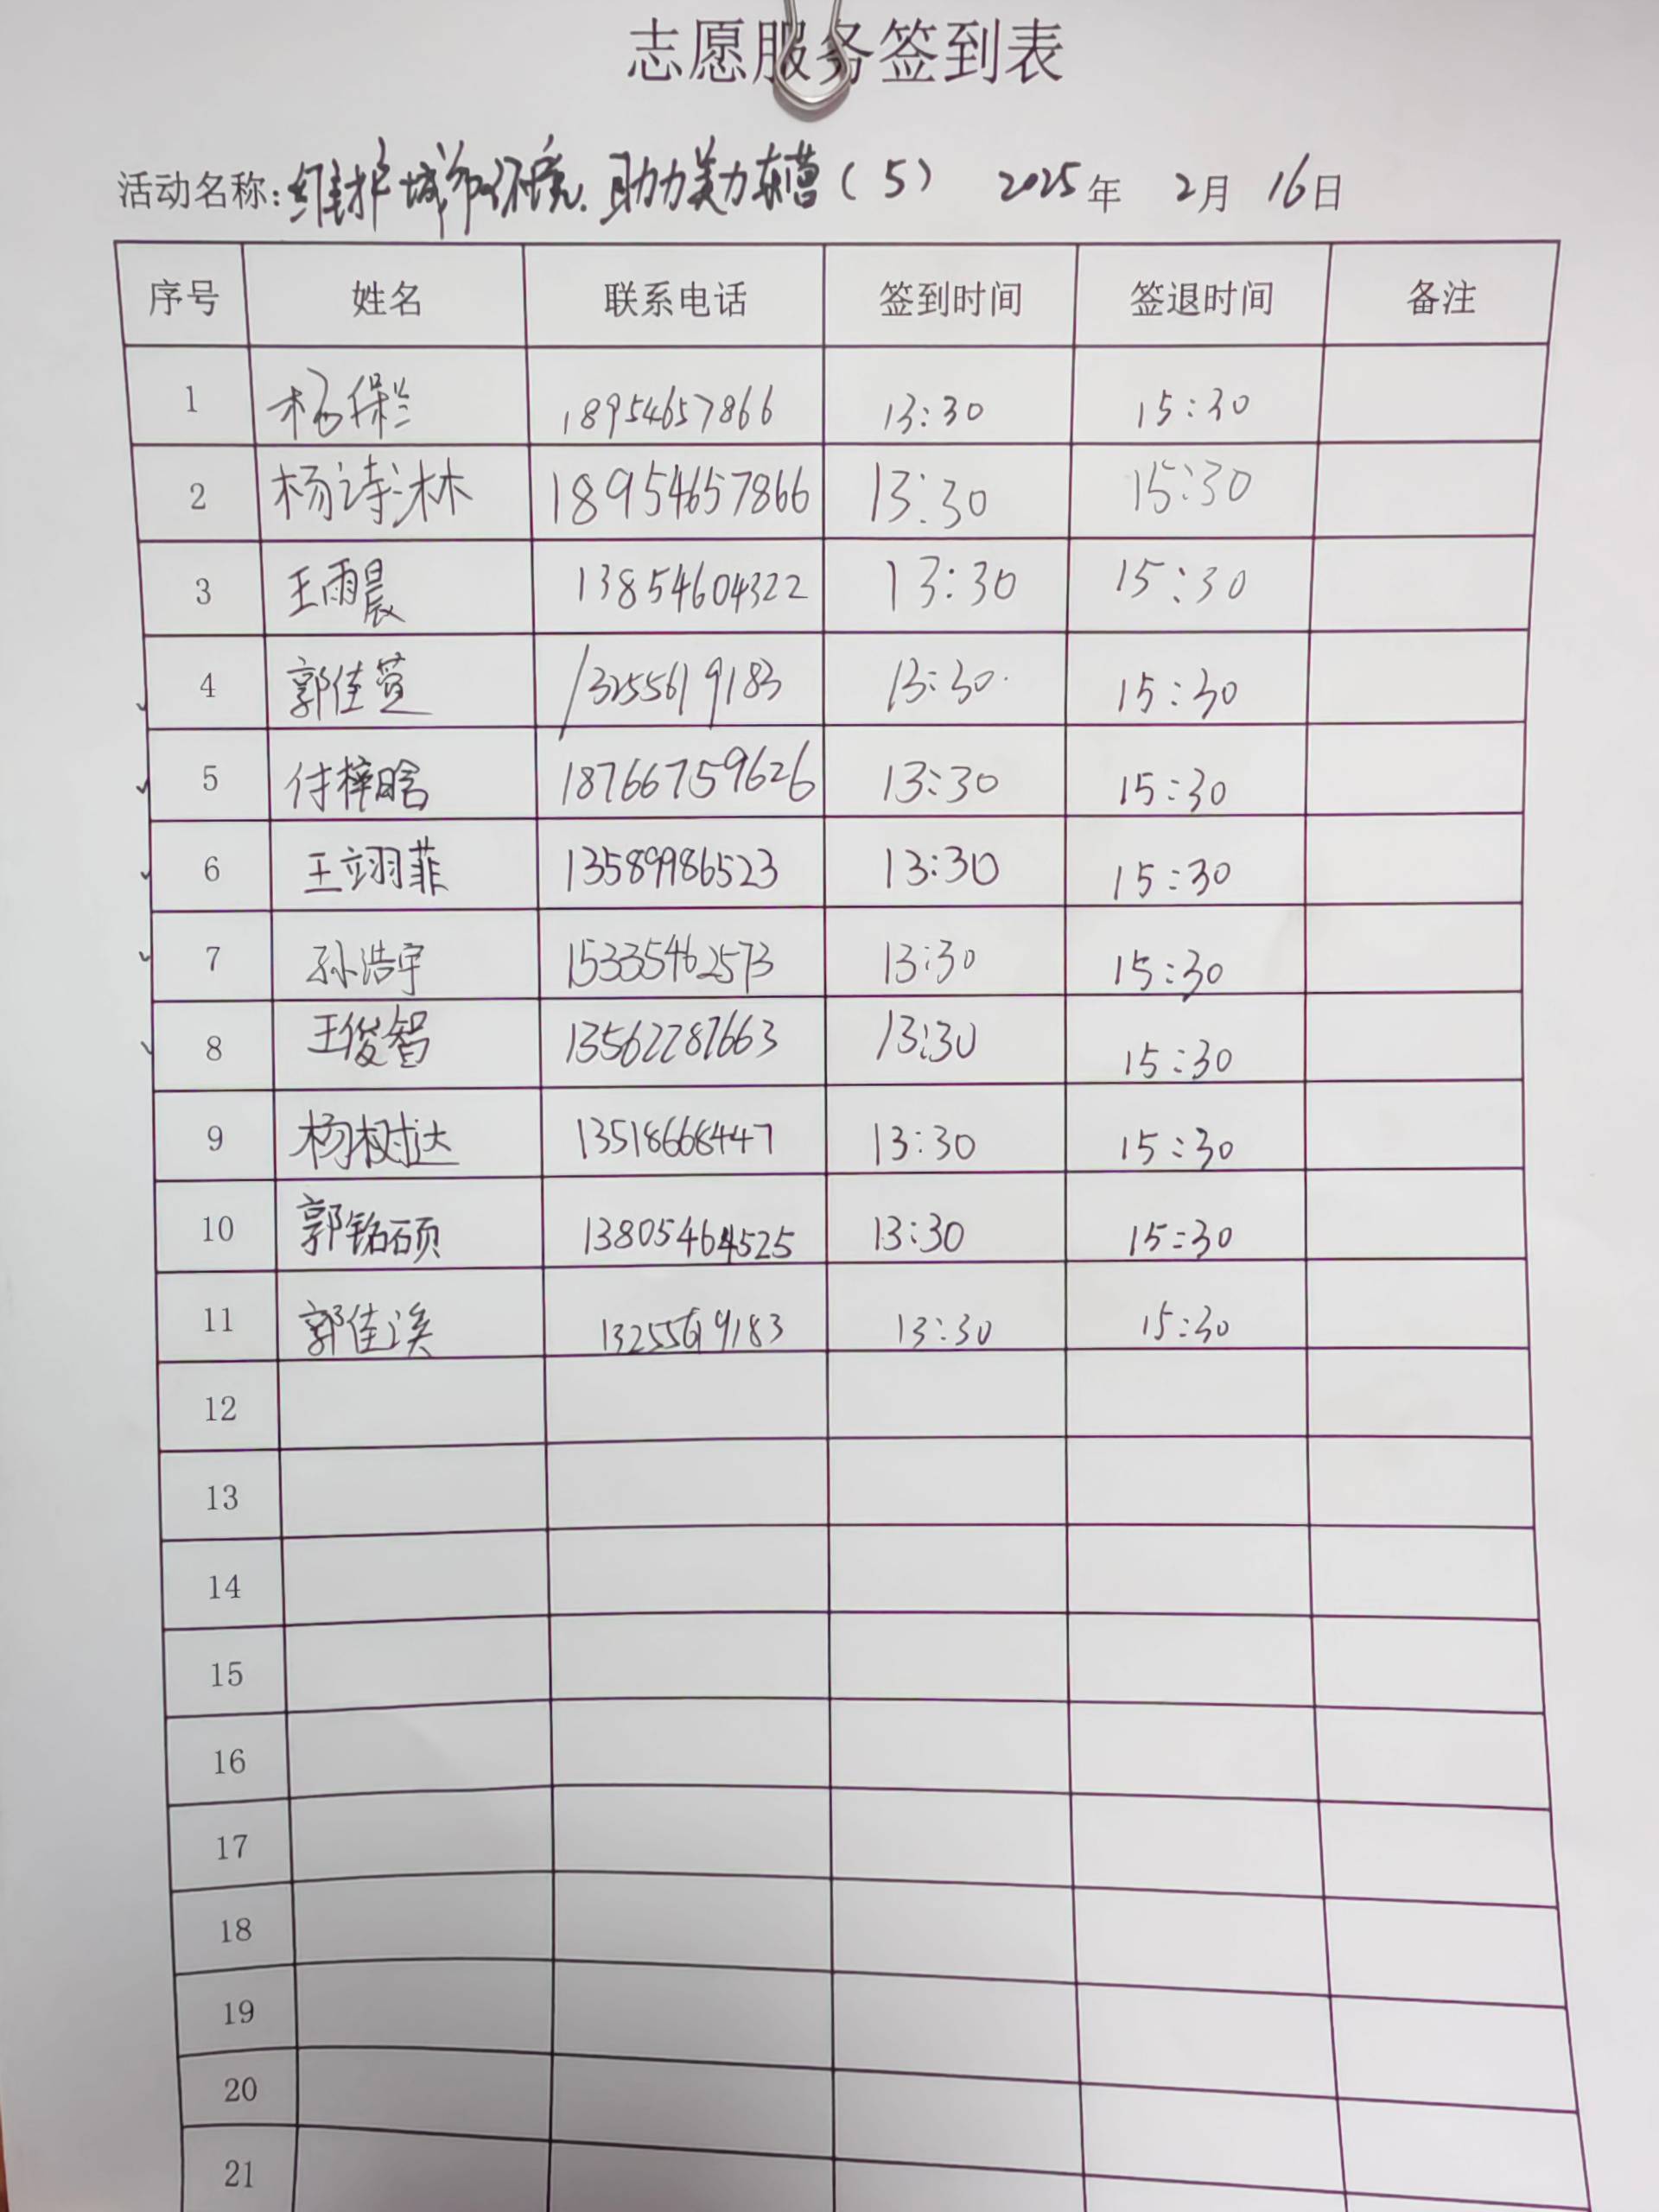 志愿服务签到表
活动名称: 维护城市环境.助力美力东营(5) 2025年 2月 16日
序号 姓名 联系电话 签到时间 签退时间 备注
1 杨保兰 18954657866 13:30 15:30
2 杨诗沐 18954657866 13:30 15:30
3 王雨晨 13854604322 13:30 15:30
4 郭佳萱 13255619183 13:30 15:30
5 付梓晗 18766759626 13:30 15:30
6 王翊菲 13589986523 13:30 15:30
7 孙浩宇 15335462573 13:30 15:30
8 王俊智 13562287663 13:30 15:30
9 杨树达 13518668447 13:30 15:30
10 郭铭硕 13805464525 13:30 15:30
11 郭佳溪 13255619183 13:30 15:30
12
13
14
15
16
17
18
19
20
21